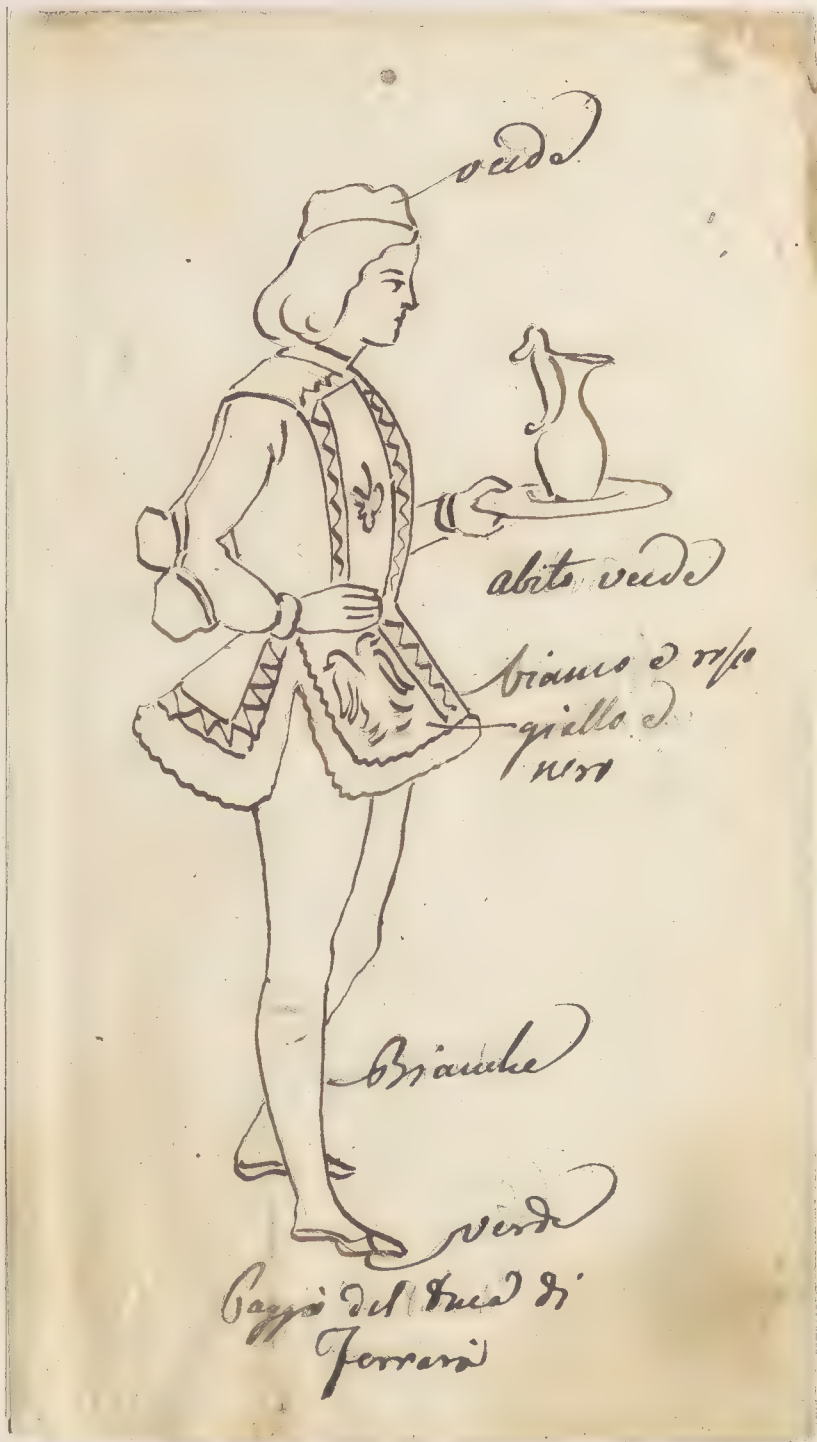 verde
abito verde
bianco e rosso
giallo e
nero
Bianche
verdi
Paggi del Duca di
Ferrara